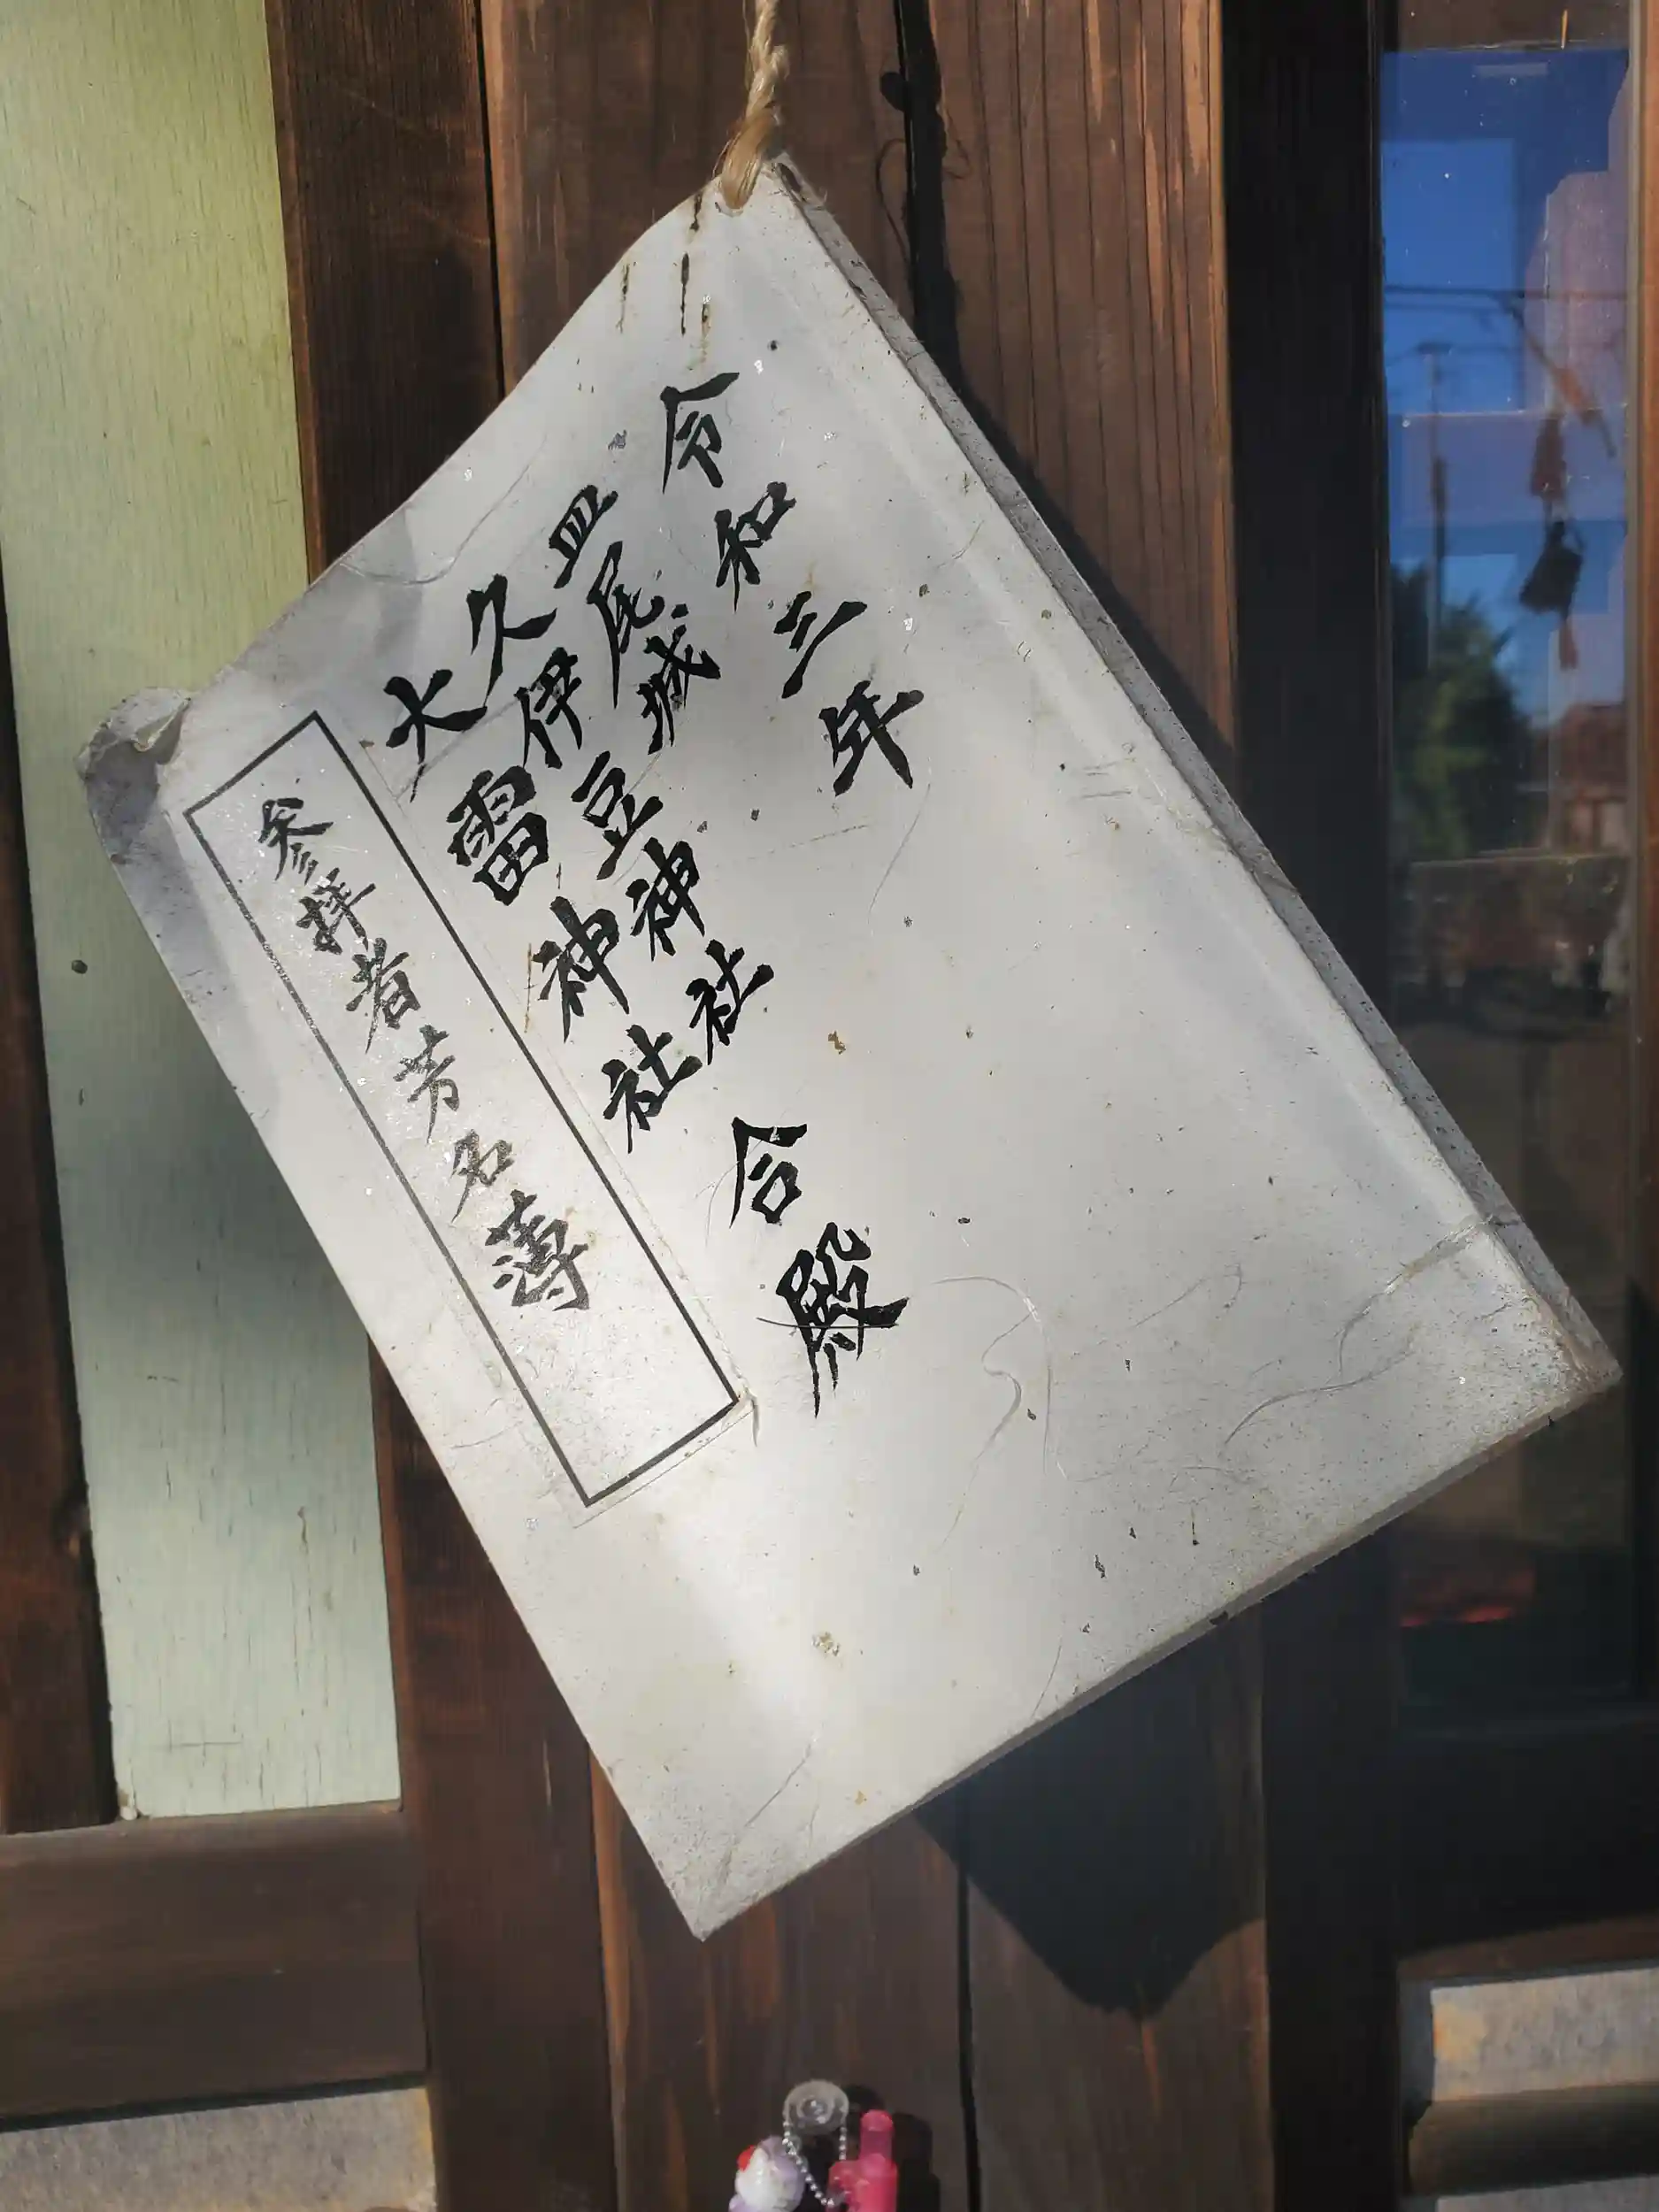 令和三年
皿尾城
久伊豆神社
大雷神社
合殿
参拝者芳名薄